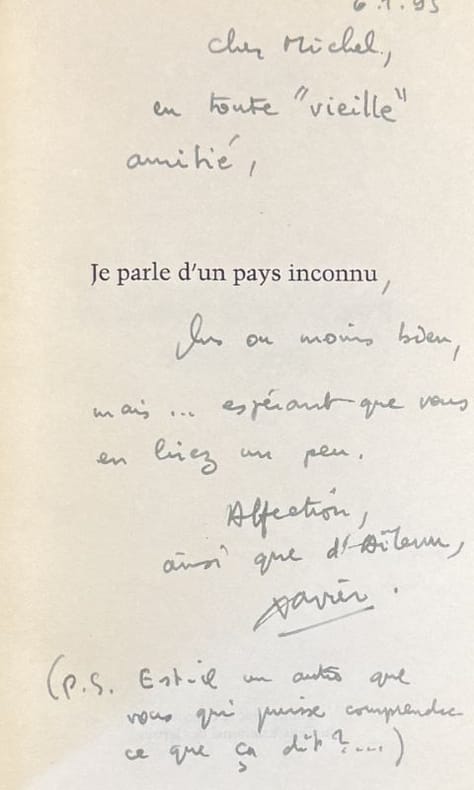 6.1.95
cher Michel,
en toute "vieille"
amitié,
Je parle d'un pays inconnu,
plus ou moins bien,
mais ... espérant que vous
en lirez un peu.
Affection,
ainsi que d'
Xavier.
(P.S. Est-il un autre que
vous qui puisse comprendre
ce que ça dit ?...)